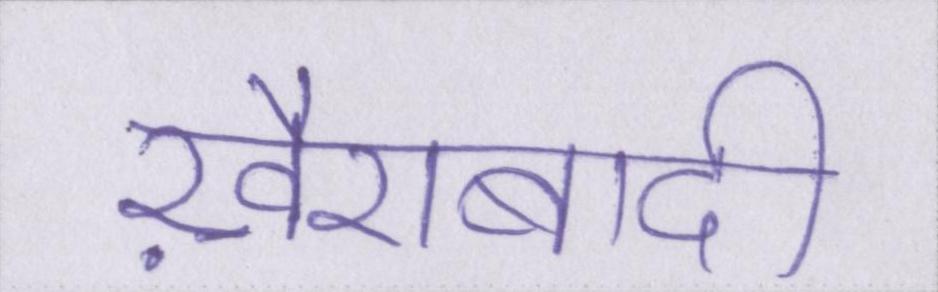 ख़ैराबादी